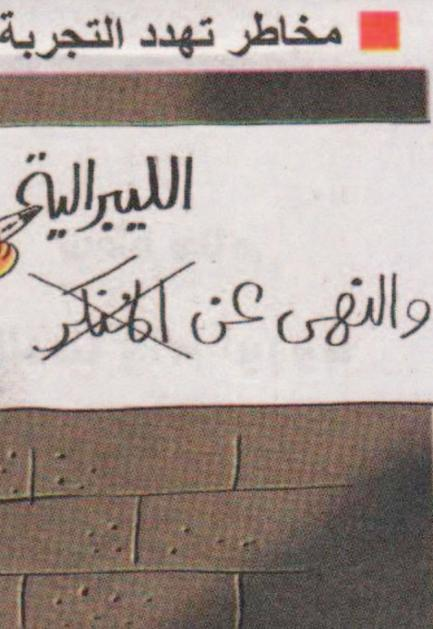 مخاطر تهدد التجربة
الليبرالية
والنهى عن المنكر